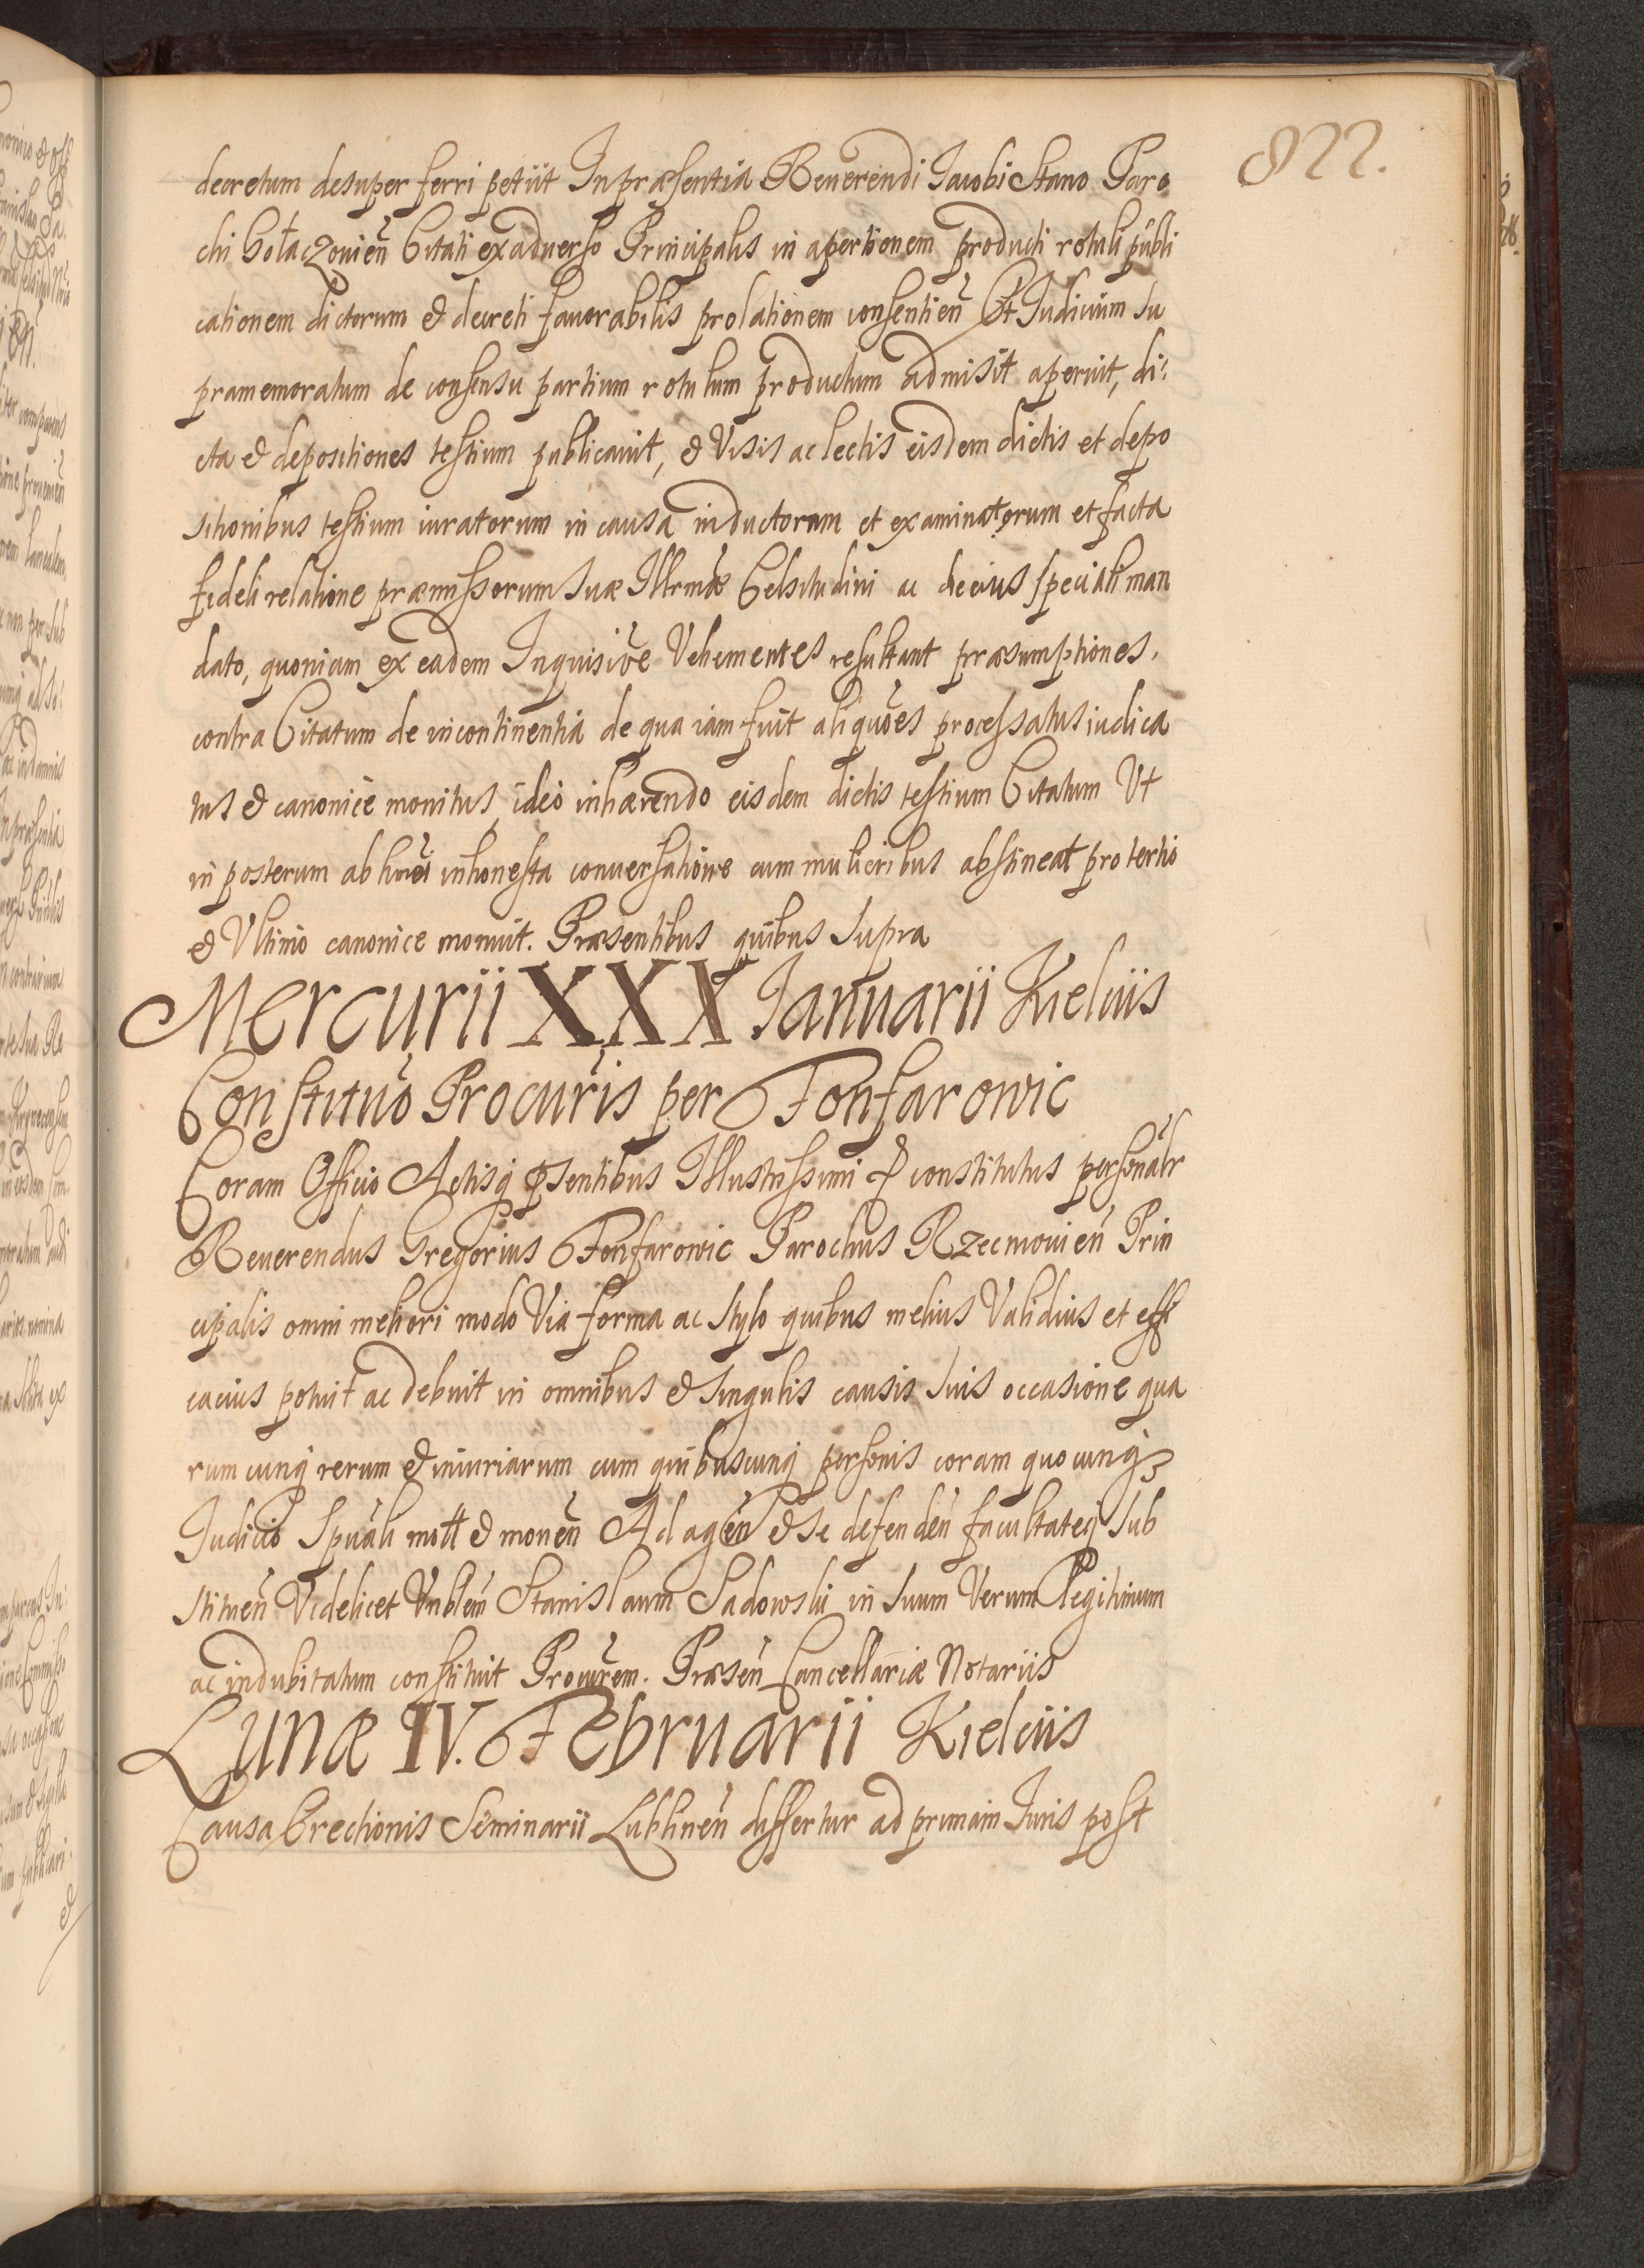 822.
decretum desuper ferri petiit In præsentia Reuerendi Jacobi Stano Paro
chi Gołaczouien̄ Citati ex aduerso Principalis in apertionem producti rotuli publi
cationem dictorum & decreti fauorabilis prolationem consentien̄ Et Iudicium su
pramemoratum de consensu partium rotulum productum admisit aperuit, di:
cta & depositiones testium publicauit, & Visis ac lectis eisdem dictis et depo
sitionibus testium iuratorum in causa inductorum et examinatorum et facta
fideli relatione præmissorum Suæ Illrmæ Celsitudini ac de eius speciali man
dato, quoniam ex eadem Inquisiōe Vehementes resultant præsumptiones,
contra Citatum de incontinentia de qua iam fuit aliquōes processatus iudica
tus & canonice monitus, ideo inhærendo eisdem dictis testium Citatum Vt
in posterum ab hmōi inhonesta conuersatione cum mulieribus abstineat pro tertio
& Vltimo canonice monuit. Præsentibus quibus supra
Mercurii XXX Januarii Kielciis
Constituō Procuris per Fonfarowic
Coram Officio Actisq̨ p̄sentibus Illustrissimi & constitutus personalr̄
Reuerendus Gregorius Fonfarowic Parochus Rzecniouien̄ Prin
cipalis omni meliori modo Via forma ac stylo quibus melius Validius et effi
cacius potuit ac debuit in omnibus & singulis causis suis occasione qua
rum cunq̨ rerum & iniuriarum cum quibuscunq̨ personis coram quocunq̨
Iudicio Spūali mott & mouen̄ Ad agen̄ & se defenden̄ facultateq̨ sub
stituen̄ Videlicet Vnblem̄ Stanislaum Sadowski in suum Verum Legitimum
ac indubitatum constituit Procur̄em. Præsen̄ Cancellariæ Notariis
Lunæ IV. Februarii Kielciis
Causa Erectionis Seminarii Lublinen̄ differtur ad primam Iuris post